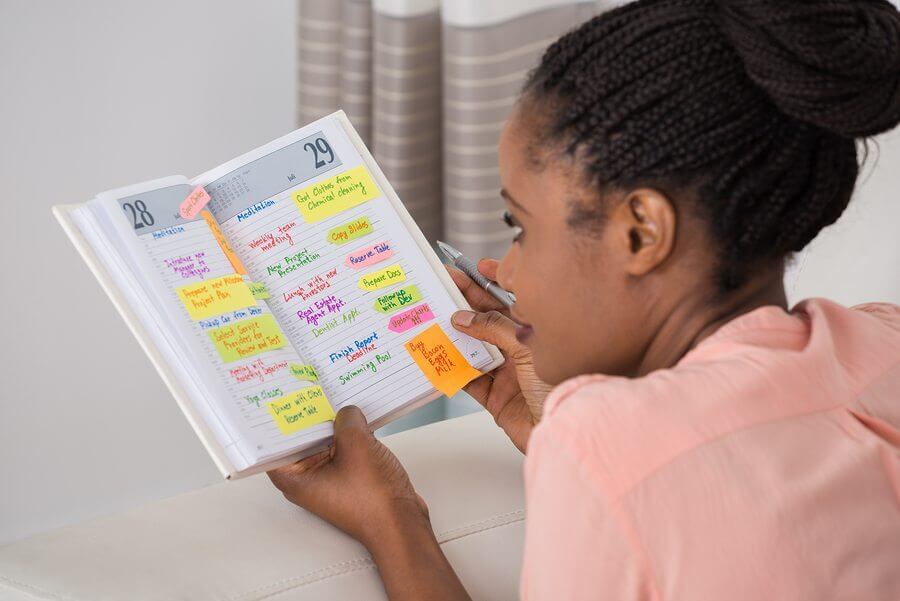 28
Meditation
Introduce new
Manager to
Colleagues
Prepare new
Project Plan
Pickup Car from
Select Service
Providers for
Review and Test
Meeting with
Marketing Department
Yoga Classes
Dinner with
Reserve Table
29
Juli
Meditation
Weekly team
meeting
New Project
Presentation
Lunch with new
investors
Real Estate
Agency Appt.
Dentist Appl.
Finish Report
Deadline
Swimming Pool
Get Clothes from
Chemical cleaning
Copy Slides
Reserve Table
Prepare Docs
Follow up
with Dev
Update Charts
!!!
Buy
Bacon
Eggs
Milk